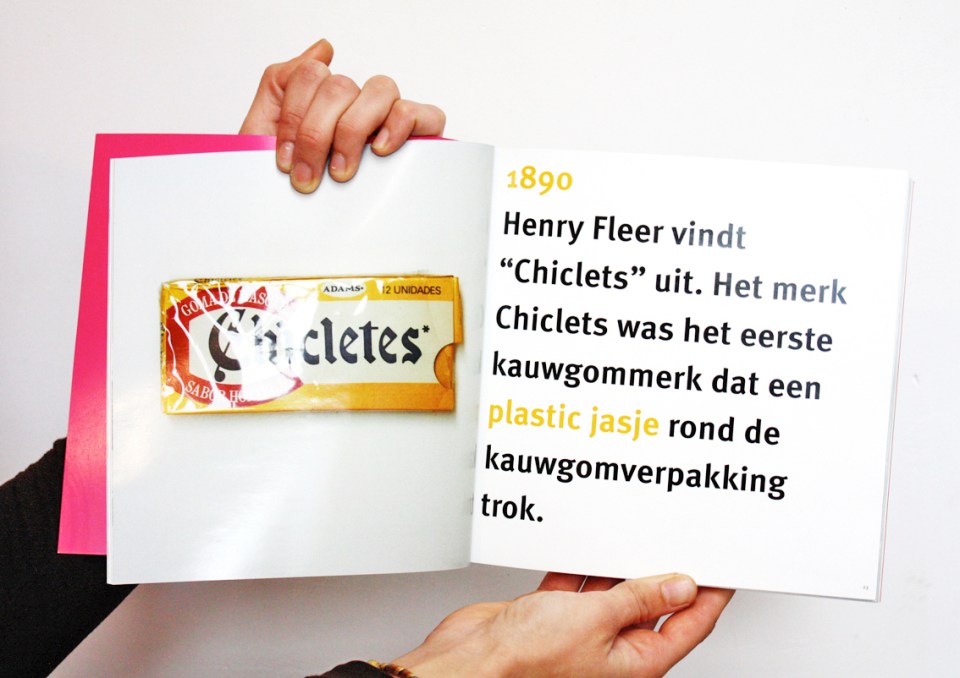 GOMA DE MASC
ADAMS® 12 UNIDADES
Chicletes*
SABOR HO
1890
Henry Fleer vindt
“Chiclets” uit. Het merk
Chiclets was het eerste
kauwgommerk dat een
plastic jasje rond de
kauwgomverpakking
trok.